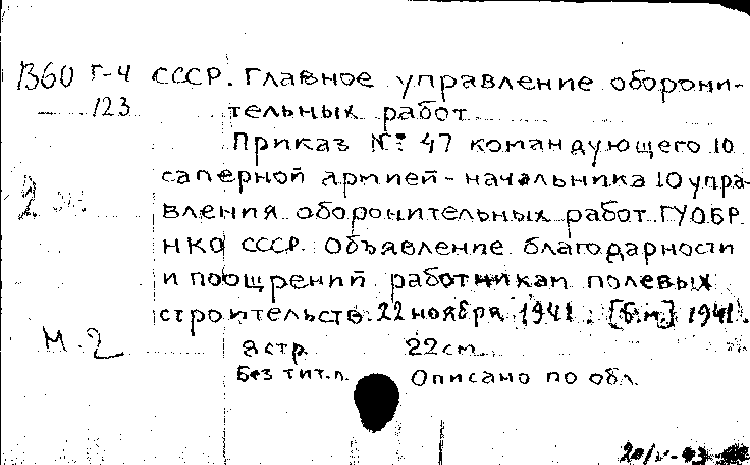 В60 Г-4 СССР. Главное управление оборони-
123 тельных работ
Приказ № 47 командующего 10
саперной армией - начальника 10 упра-
2 экз. вления оборонительных работ ГУОБР
НКО СССР. Объявление благодарности
и поощрений работникам полевых
строительств. 22 ноября 1941. [б.м.] 1941.
М-2 8 стр. 22 см.
Без тит.л. Описано по обл.